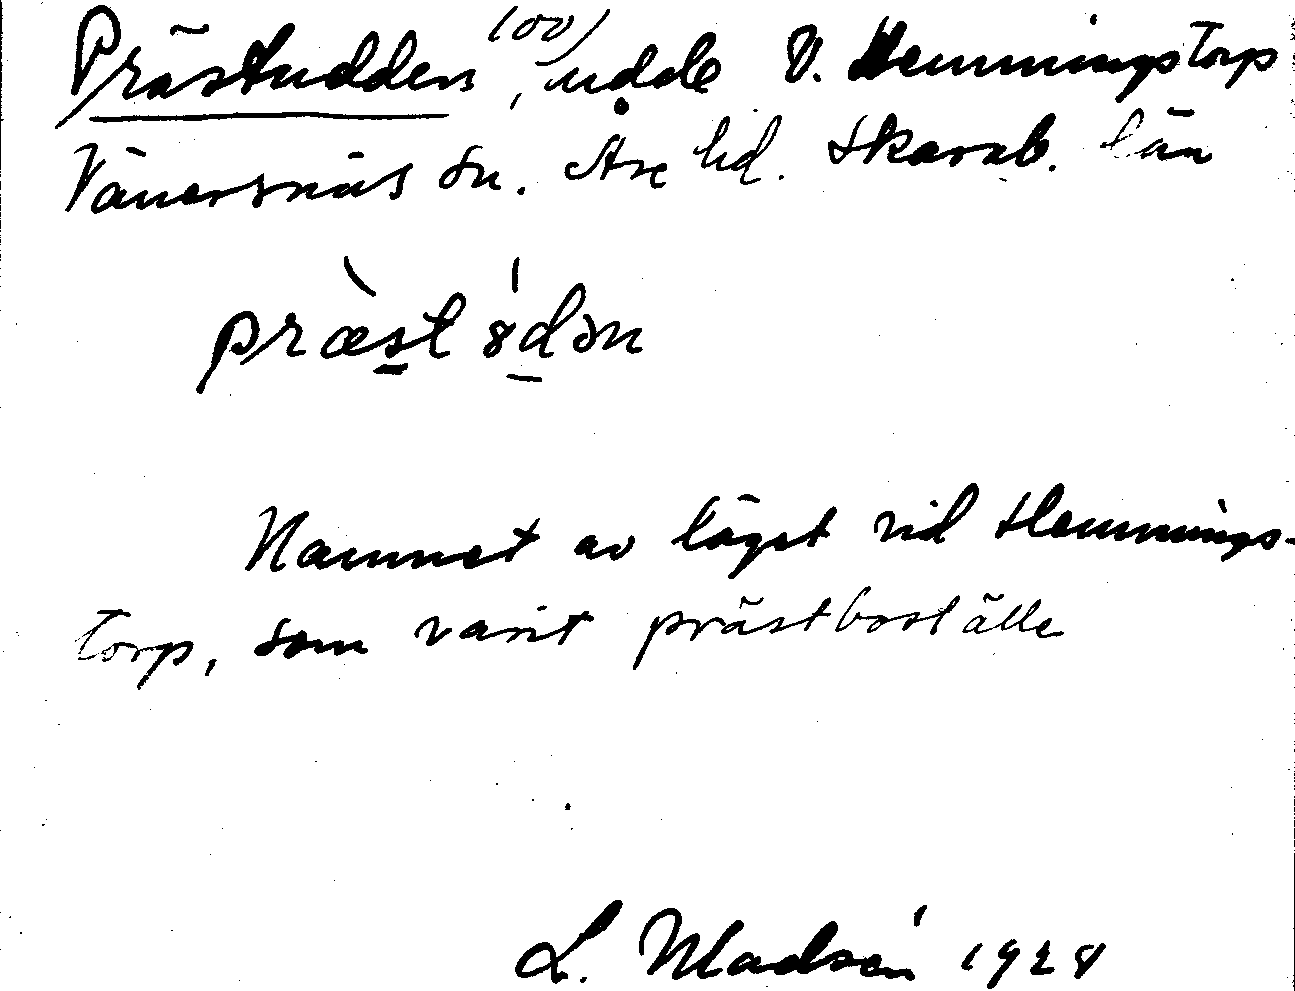 Prästudden (oo), udde V. Hemmingstorp
Vänersnäs sn. Åse hd. Skarab. län
præst 8dən
Namnet av läget vid Hemmings-
torp, som varit prästboställe
L. Madsén 1928